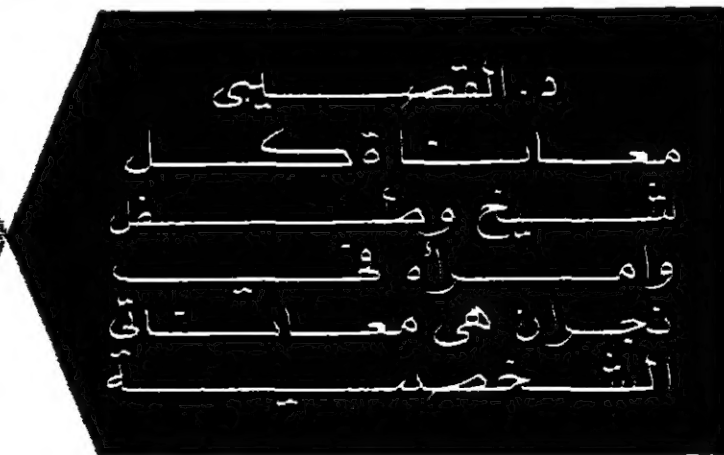 د. القصيبى
معاناة كل
شيخ وطفل
وامرأه فى
نجران هى معاناتى
الشخصية